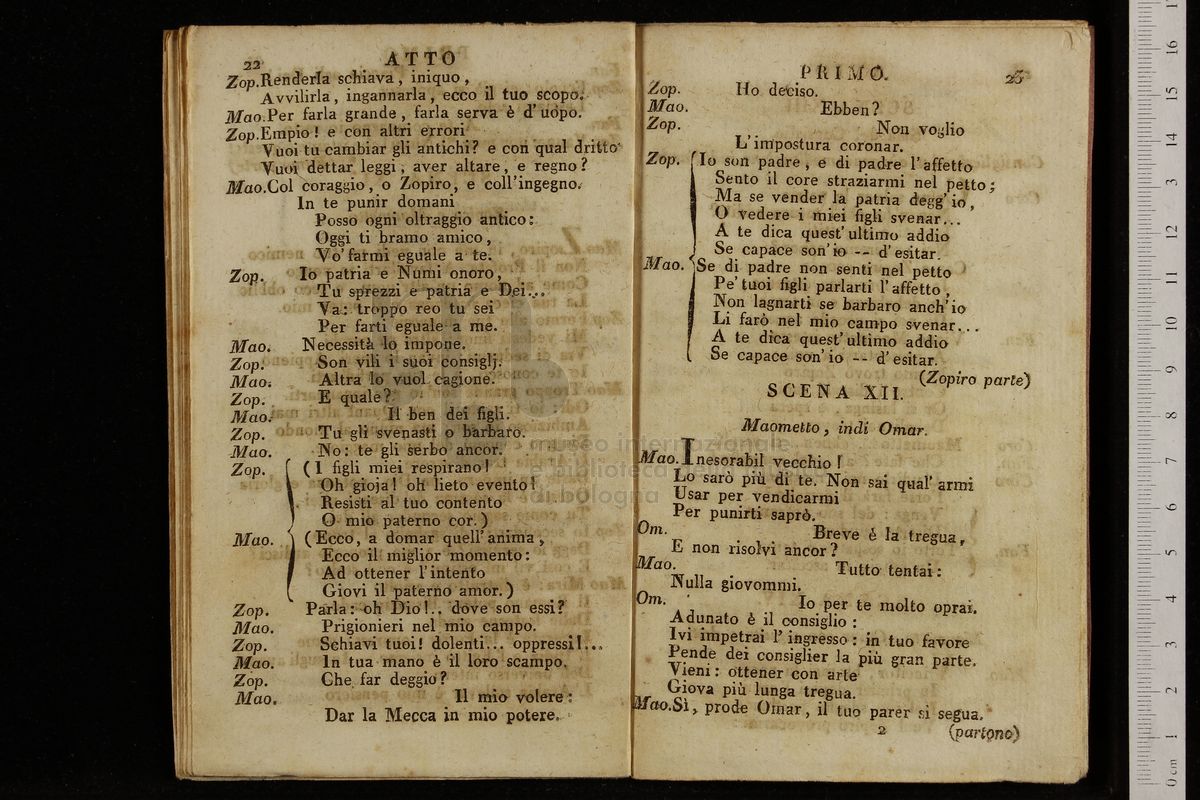 22 ATTO
Zop. Renderla schiava, iniquo,
Avvilirla, ingannarla, ecco il tuo scopo.
Mao. Per farla grande, farla serva è d'uopo.
Zop. Empio! e con altri errori
Vuoi tu cambiar gli antichi? e con qual dritto
Vuoi dettar leggi, aver altare, e regno?
Mao. Col coraggio, o Zopiro, e coll'ingegno.
In te punir domani
Posso ogni oltraggio antico:
Oggi ti bramo amico,
Vo' farmi eguale a te.
Zop. Io patria e Numi onoro,
Tu sprezzi e patria e Dei...
Va: troppo reo tu sei
Per farti eguale a me.
Mao. Necessità lo impone.
Zop. Son vili i suoi consiglj.
Mao. Altra lo vuol cagione.
Zop. E quale?
Mao. Il ben dei figli.
Zop. Tu gli svenasti o barbaro.
Mao. No: te gli serbo ancor.
Zop. (I figli miei respirano!
Oh gioja! oh lieto evento!
Resisti al tuo contento
O mio paterno cor.)
Mao. (Ecco, a domar quell'anima,
Ecco il miglior momento:
Ad ottener l'intento
Giovi il paterno amor.)
Zop. Parla: oh Dio!.. dove son essi?
Mao. Prigionieri nel mio campo.
Zop. Schiavi tuoi! dolenti... oppressi!...
Mao. In tua mano è il loro scampo.
Zop. Che far deggio?
Mao. Il mio volere:
Dar la Mecca in mio potere.
PRIMO. 23
Zop. Ho deciso.
Mao. Ebben?
Zop. Non voglio
L'impostura coronar.
Zop. Io son padre, e di padre l'affetto
Sento il core straziarmi nel petto;
Ma se vender la patria degg'io,
O vedere i miei figli svenar...
A te dica quest'ultimo addio
Se capace son'io -- d'esitar.
Mao. Se di padre non senti nel petto
Pe' tuoi figli parlarti l'affetto,
Non lagnarti se barbaro anch'io
Li farò nel mio campo svenar...
A te dica quest'ultimo addio
Se capace son'io -- d'esitar.
(Zopiro parte)
SCENA XII.
Maometto, indi Omar.
Mao. Inesorabil vecchio!
Lo sarò più di te. Non sai qual' armi
Usar per vendicarmi
Per punirti saprò.
Om. Breve é la tregua,
E non risolvi ancor?
Mao. Tutto tentai:
Nulla giovommi.
Om. Io per te molto oprai.
Adunato è il consiglio:
Ivi impetrai l'ingresso: in tuo favore
Pende dei consiglier la più gran parte.
Vieni: ottener con arte
Giova più lunga tregua.
Mao. Sì, prode Omar, il tuo parer si segua.
2 (partono)
museo internazionale
e biblioteca
di bologna
0 cm 1 2 3 4 5 6 7 8 9 10 11 12 13 14 15 16 17